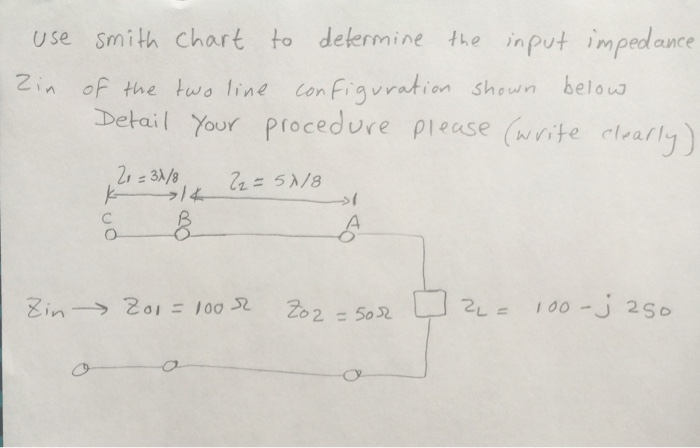 Use smith chart to determine the input impedance
Zin of the two line configuration shown below
Detail Your procedure please (write clearly)
l1 = 3λ/8 l2 = 5λ/8
C B A
Zin → Z01 = 100 Ω Z02 = 50Ω ZL = 100 - j 250